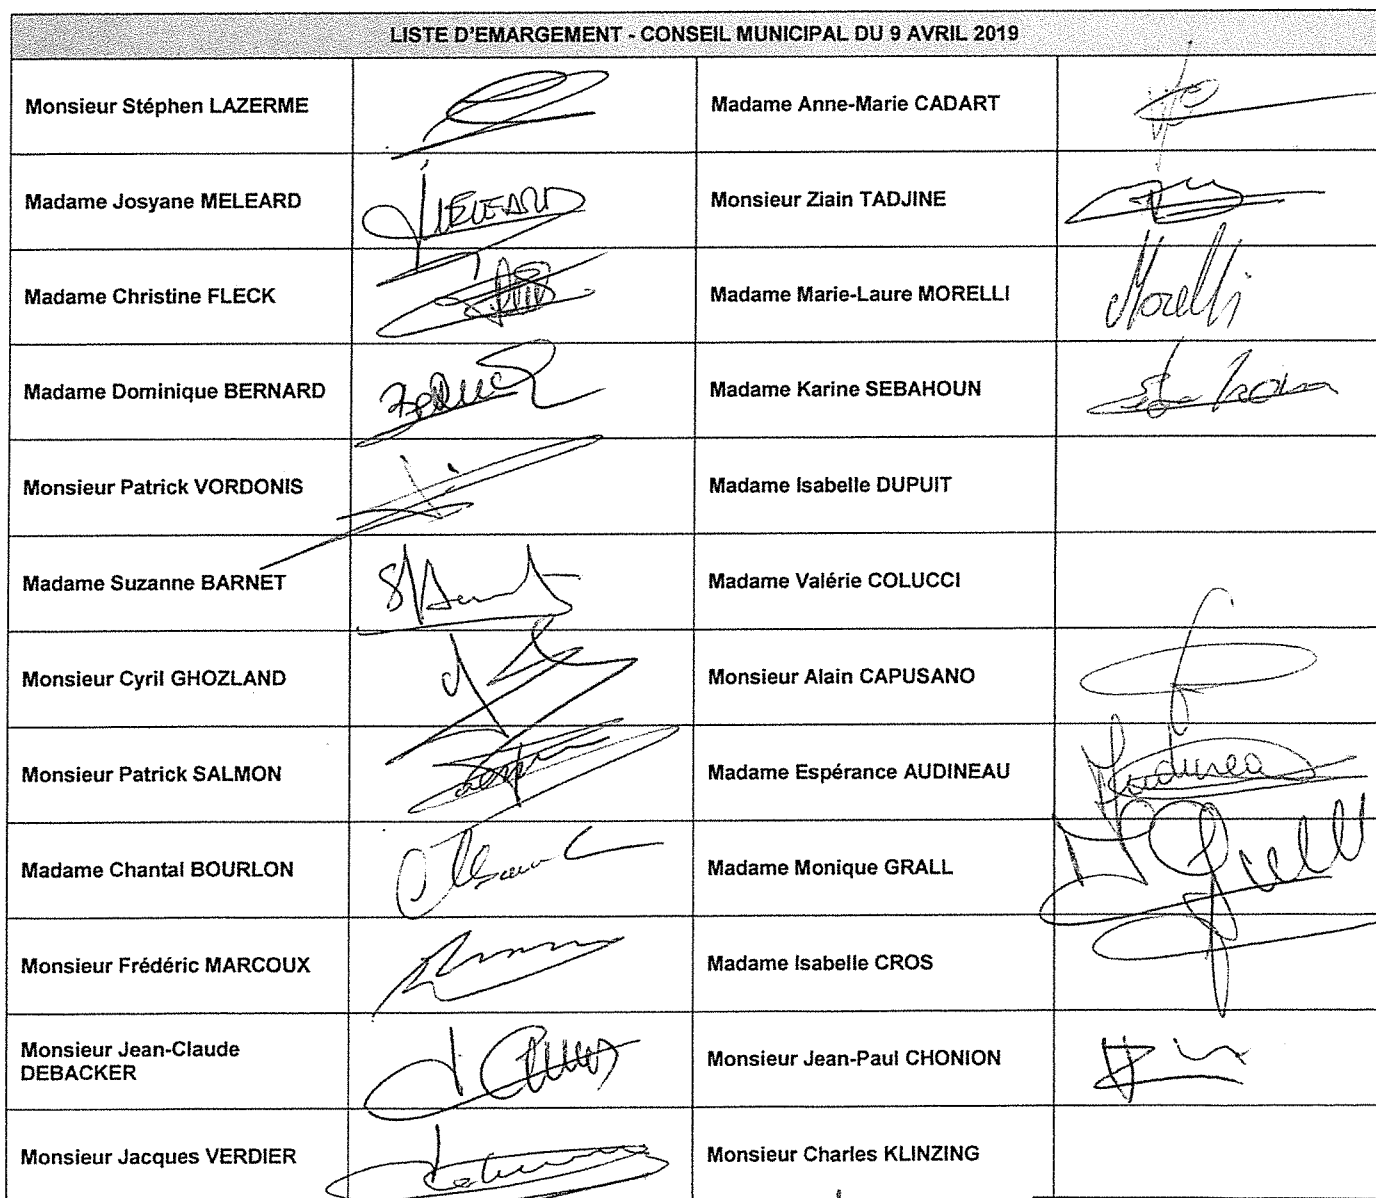 LISTE D'EMARGEMENT - CONSEIL MUNICIPAL DU 9 AVRIL 2019
Monsieur Stéphen LAZERME
Madame Anne-Marie CADART
Madame Josyane MELEARD
MELEARD
Monsieur Ziain TADJINE
Madame Christine FLECK
Madame Marie-Laure MORELLI
Morelli
Madame Dominique BERNARD
Madame Karine SEBAHOUN
Monsieur Patrick VORDONIS
Madame Isabelle DUPUIT
Madame Suzanne BARNET
Madame Valérie COLUCCI
Monsieur Cyril GHOZLAND
Monsieur Alain CAPUSANO
Monsieur Patrick SALMON
Madame Espérance AUDINEAU
Madame Chantal BOURLON
Madame Monique GRALL
Monsieur Frédéric MARCOUX
Madame Isabelle CROS
Monsieur Jean-Claude
DEBACKER
Monsieur Jean-Paul CHONION
Monsieur Jacques VERDIER
Monsieur Charles KLINZING